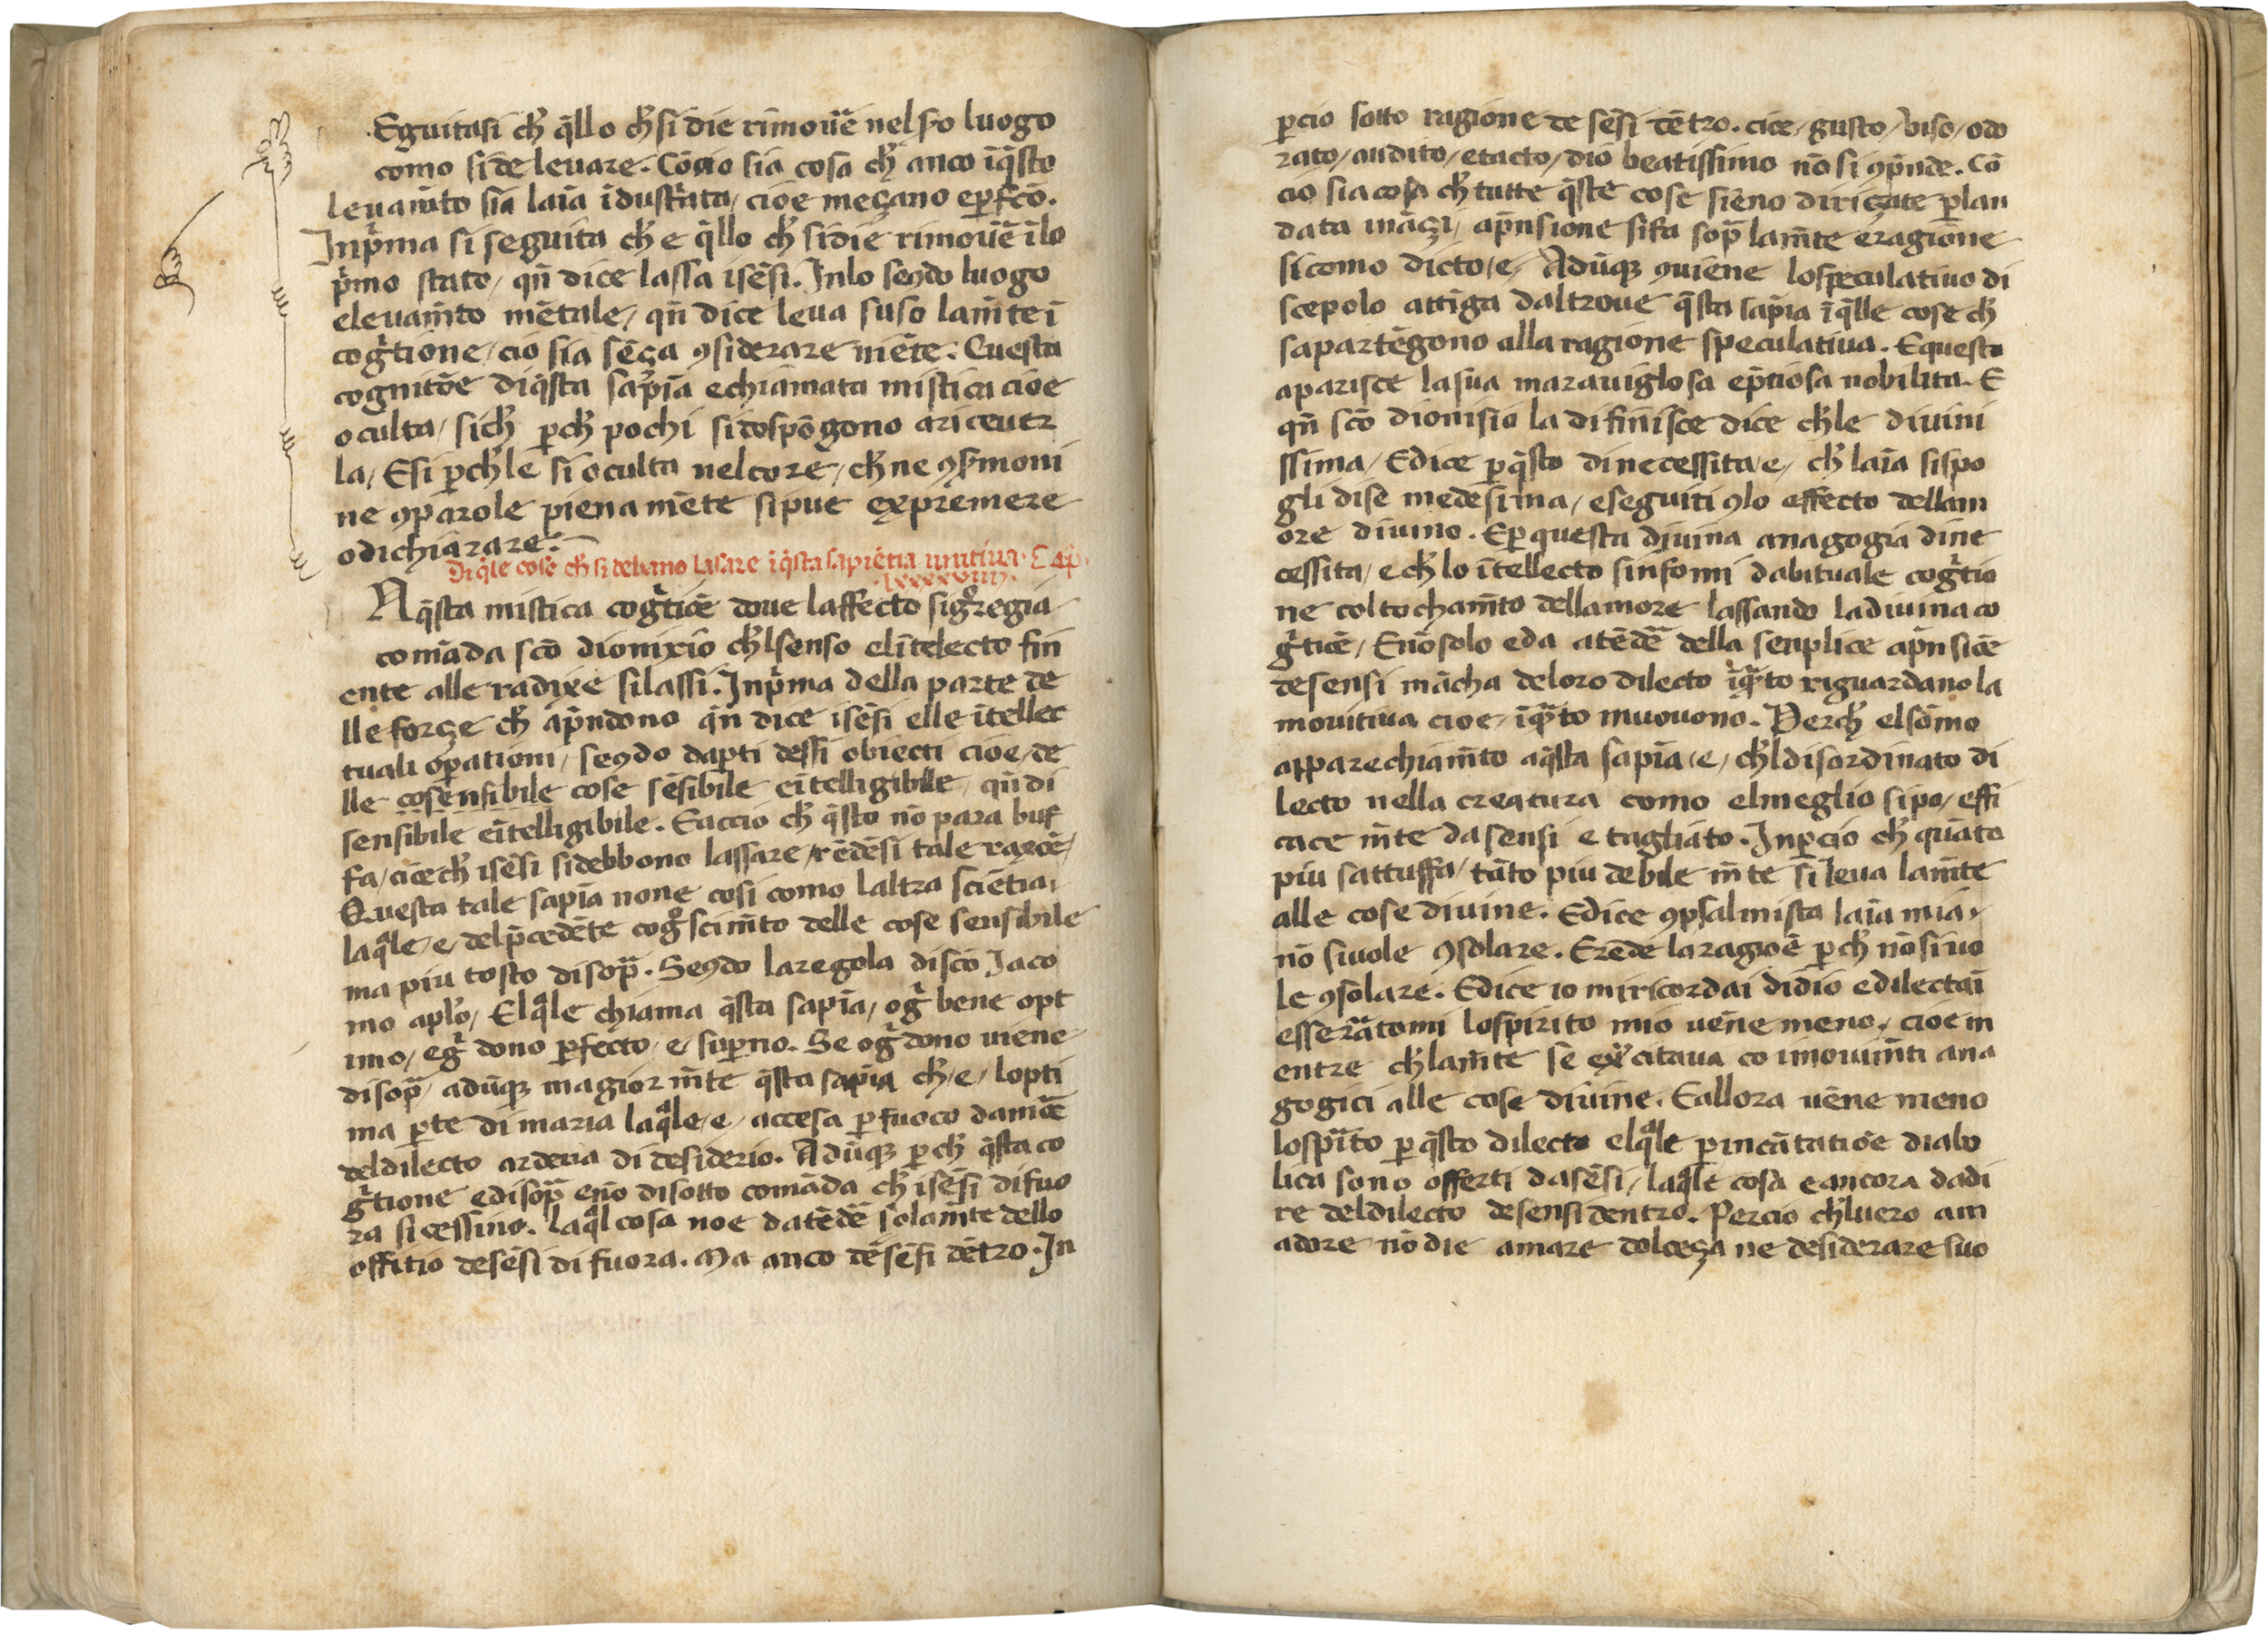 Eguitasi ch̄ q̄llo ch̄ si die rimouē nel so luogo
como si de leuare. Cōcio sia cosa ch̄ anco īq̄sto
leuam̄to sia laīa īdustrata, cioe meçano e ꝑfcō.
Inp̄ma si seguita ch̄ e q̄llo ch̄ si die rimouē īlo
p̄mo stato, qn̄ dice lassa isēsi. Inlo seꝯdo luogo
eleuam̄to mētale, qn̄ dice leua suso lam̄te ī
cogͥtione, cio sia sēça ꝯsiderare niēte. Questa
cognitōe diq̄sta sapīa echiāmata mistica cioe
oculta, sich̄ ꝑch̄ pochi si dospōgono a riceuer
la, Esi ꝑch̄ le si oculta nel core, ch̄ ne ꝯ sermoni
ne ꝯ parole piena mēte si puc expremere
o dichiarare.
Di q̄le cose ch̄ si debano lasare ī q̄sta sapiētia unitiua. Cap.
.lxxxxviiij.
A q̄sta mistica cogͥtiōe doue laffecto signoregia
comāda scō dionixio ch̄l senso el ītelecto fin
ente alle radixe si lassi. Inp̄ma della parte de
lle forçe ch̄ ap̄ndono qn̄ dice isēsi elle ītellec
tuali oꝑationi, seꝯdo daꝑti dessi obiecti cioe, de
lle cosensibile cose sēsibile eītelligibile, qn̄ di
sensibile eītelligibile. Eaccio ch̄ q̄sto nō para buf
fa, ciōe ch̄ isēsi si debbono lassare, rēdesi tale raxōe,
Questa tale sapīa none cosi como laltra sciētia,
laq̄le, e, del p̄cedēte cogͦscim̄to delle cose sensibile
ma piu tosto disop̄. Seꝯdo la regola discō Jaco
mo apl̄o, Elq̄le chiama q̄sta sapīa, ogͥ bene opt
imo, e gͥ dono ꝑfecto e suꝑno. Se ogͥ dono uiene
disop̄, adūqꝫ magior m̄te q̄sta sapīa ch̄, e, lopti
ma ꝑte di maria laq̄le, e, accesa ꝑ fuoco damōe
deldilecto ardena di desiderio. Adūqꝫ ꝑch̄ q̄sta co
gͥtione e disop̄ e nō disotto comāda ch̄ isēsi difuo
ra si cessino. laq̄l cosa noe datēdē solam̄te dello
offitio desēsi di fuora. Ma anco dēsēsi dētro. In
ꝑcio sotto ragione de sēsi dētro. cioe, gusto, uiso, odo
rato, audito, e tacto, dio beatissimo nō si ꝯp̄nde. Cō
cio sia cosa ch̄ tutte q̄ste cose siēno diriçate ꝑ lan
data ināçi, ap̄nsione si fa sop̄ lam̄te e ragione
sicomo dicto, e, Adūqꝫ ꝯuiene lo speculatiuo di
scepolo attīga daltroue q̄sta sapīa ī q̄lle cose ch̄
sapartēgono alla ragione speculatiua. E questo
aparisce la sua marauiglosa e p̄tiosa nobilita. E
qn̄ scō dionisio la difinisce dice ch̄le diuini
ssima, Edice ꝑ q̄sto dinecessita, e, ch̄ laīa si spo
gli dise medesima, e seguiti ꝯlo effecto dellam
ore diuino. Eꝑ questa diuina anagogia dine
cessita, e ch̄ lo ītellecto sinfonni dabituale cogͥtio
ne col tocham̄to dellamore lassando la diuina co
gͥtiōe, Enō solo eda atēdē della senplice ap̄nsiōe
de sensi mācha deloro dilecto īq̄to riguardano la
mouitiua cioe, īq̄to muouono. Perch̄ elsōmo
apparechiam̄to aq̄sta sapīa, e, ch̄l disordinato di
lecto nella creatura como elmeglio si po, effi
cace m̄te da sensi e tagliāto. Inꝑcio ch̄ quāto
piu sattuffa, tāto piu debile m̄te si leua lam̄te
alle cose diuine. Edice ꝯ psalmista laīa mia,
nō si uole ꝯsolare. Erēde la ragiōe ꝑch̄ nō si uo
le ꝯsolare. Edice io mi ricordai di dio e dilectāi
essercitatomi lo spirito mio uēne meno, cioe m
entre ch̄ lam̄te se excitaua co i mouim̄ti ana
gogici alle cose diuine. Eallora uēne meno
lo spīto ꝑ q̄sto dilecto elq̄le ꝑ incātatiōe diabo
lica sono offerti da sēsi, laq̄le cosa e ancora dadi
re deldilecto de sensi dentro. Percio ch̄ luero am
adore nō die amare dolceça ne desiderare suo